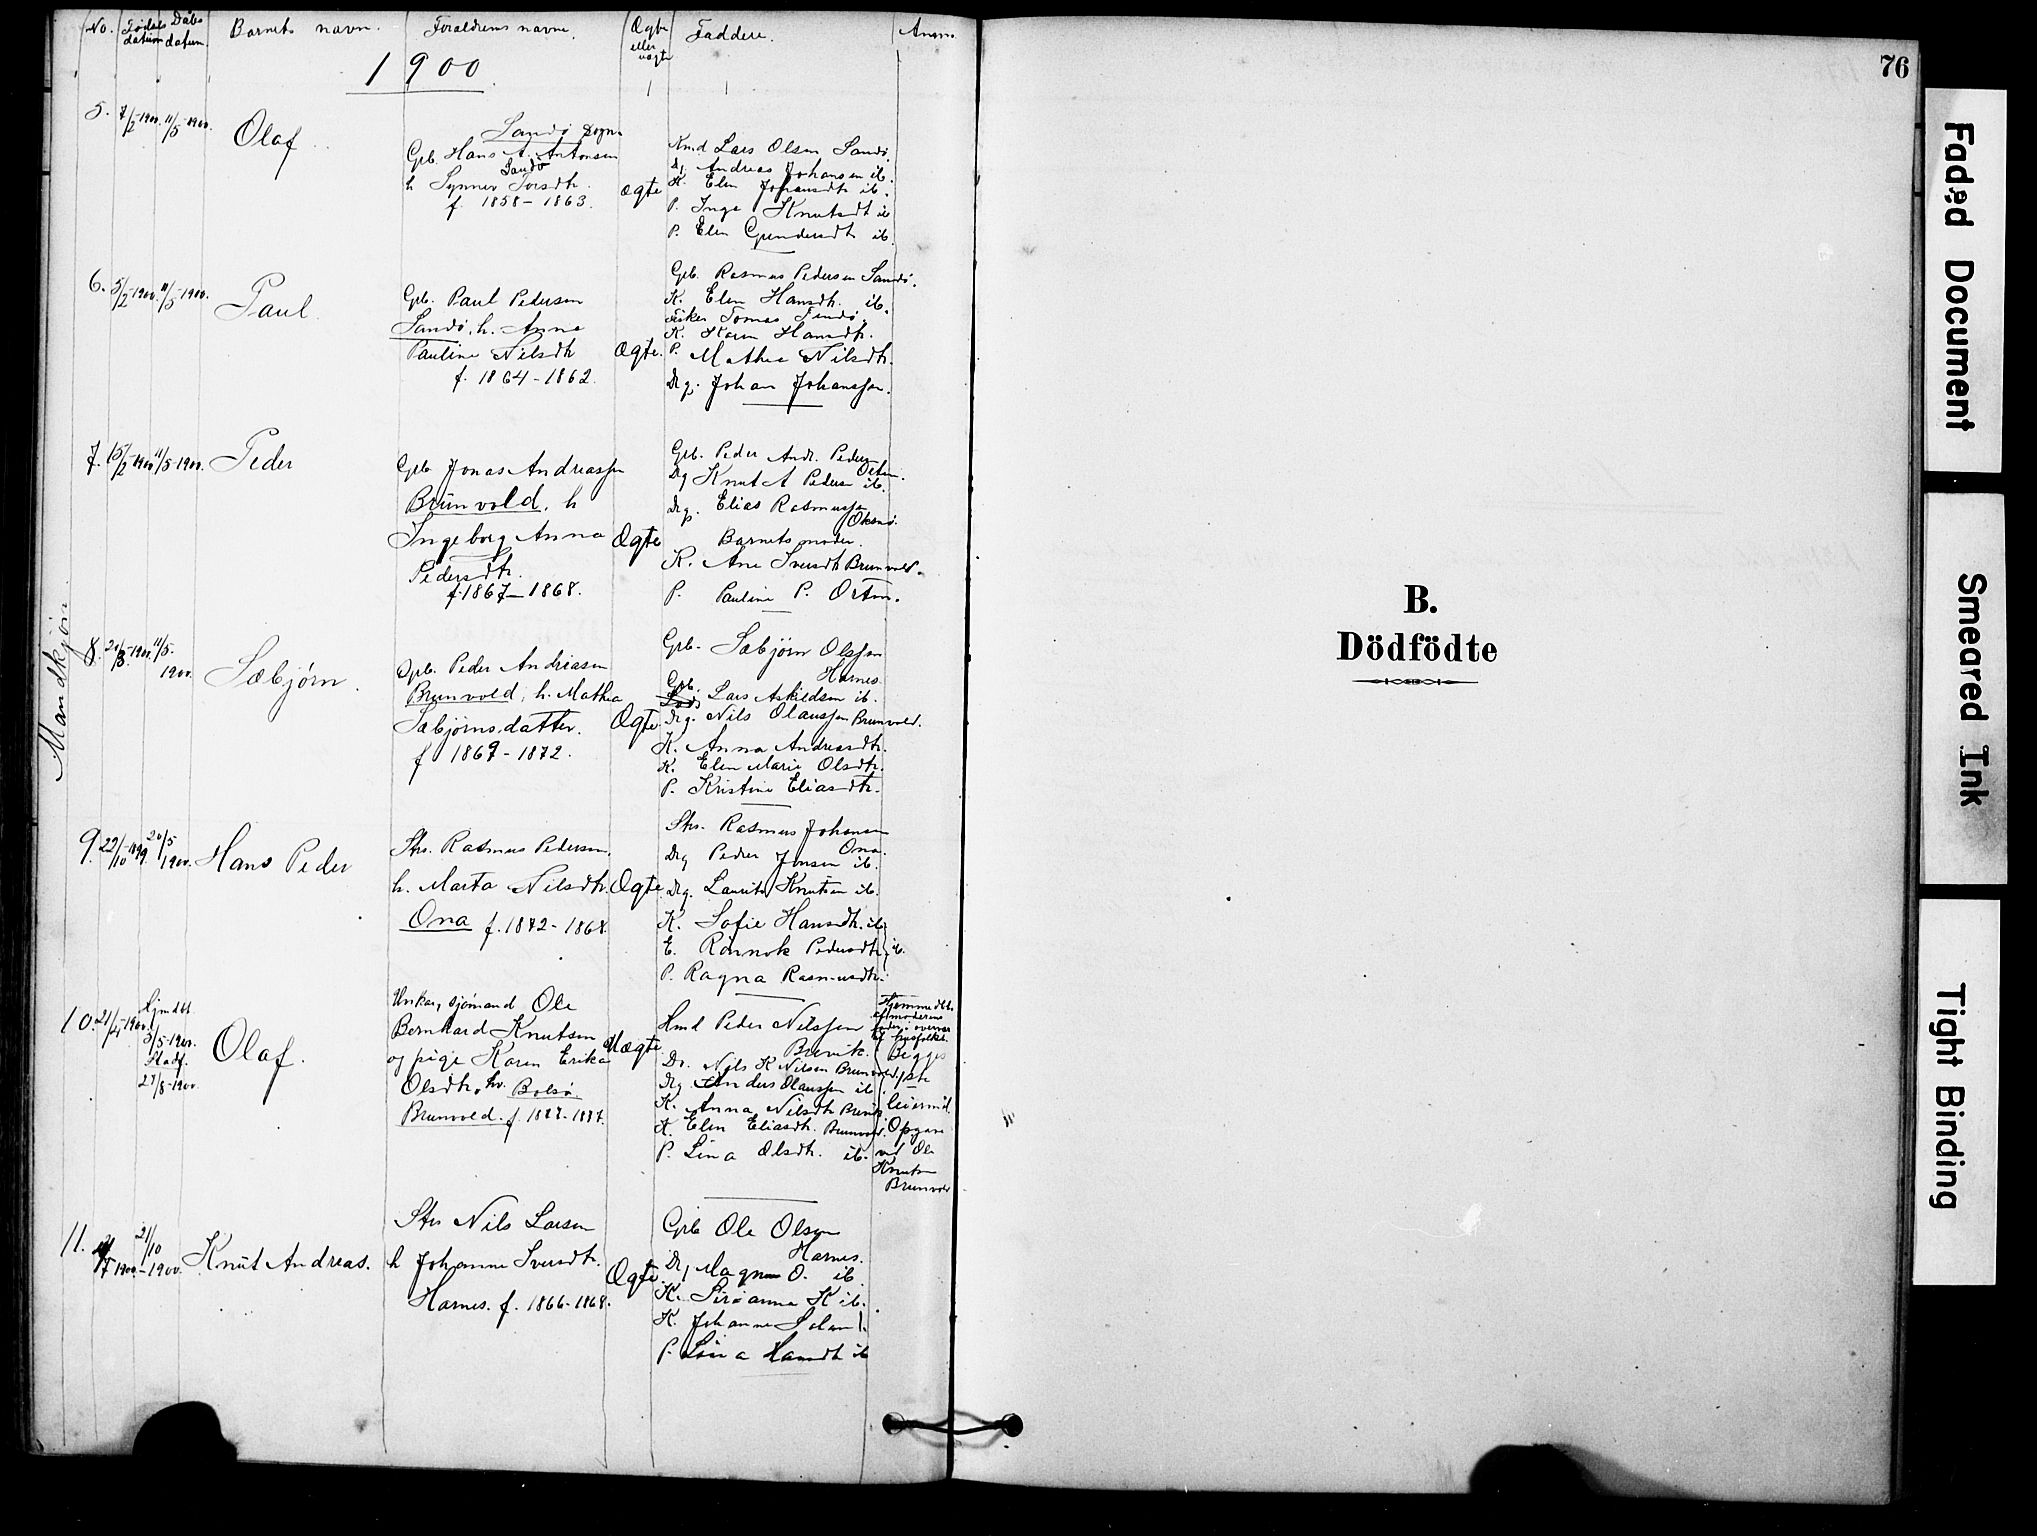 No. Fødsels datum Dåbs datum. Barnets navn. Forældrens navne. Ægte eller uægte Faddere. Anm
1900
Mandkjön
5. 7/2-1900. 11/5-1900. Olaf
Sandö Sogn
Grb. Hans A. Antonsen
Sandö
h Synnev Iversdtr.
f. 1858-1863.
ægte
Kmd Lars Olsen Sandö.
Drg Andreas Johansen ib.
K. Elen Johansdtr ib.
P. Inge Knutsdt ib
P. Elen Gundersdtr ib.
6. 5/2-1900. 11/5-1900. Paul
Grb. Paul Pedersen
Sandö, h. Anna
Pauline Nilsdtr
f. 1864-1862.
Ægte.
Grb. Rasmus Pedersen Sandö.
K. Elen Hansdtr. ib.
Fisker Tomas
K. Karen Hansdtr.
P. Mathea Nilsdtr.
Drg. Johan Johanssen.
7. 15/2-1900 11/5-1900. Peder
Grb Jonas Andreassen
Brunvold, h
Ingeborg Anna
Pedersdtr.
f. 1867-1868.
Ægte
Grb. Peder Andr. Peders
Orten.
Drg Knut A Pedersen ib.
Drg. Elias Rasmussen
Oksnö.
Barnets moder.
K. Ane Iversdtr Brunvold.
P. Pauline P. Orten.
8. 11/5-1900. Sæbjørn.
Grb. Peder Andreasen
Brunvold, h. Mathea
Sæbjørnsdatter.
f 1869-1872.
Ægte
Grb. Sæbjørn Olssen
Harnes.
Grb. Lars Askildsen ib.
Drg. Nils Olaussen Brunvold.
K. Anna Andreasdtr.
K. Elen Marie Olsdtr.
P. Kristine Eliasdtr.
9. 22/10-1899. 20/5 1900. Hans Peder
Str. Rasmus Pedersen,
h. Marta Nilsdtr.
Ona f. 1872-1868.
Ægte
Str. Rasmus Johansen
Ona.
Drg Peder Jonsen ib.
Drg. Laurits Knutsen ib.
K. Sofie Hansdtr. ib
E. Rønnok Pedersdtr. ib.
P. Ragna Rasmusdtr.
10. 21/4-1900. Hjmdbt 3/5-1900. Stadf. 27/8-1900. Olaf.
Unkar, sjömand Ole
Bernhard Knutsen
og pige Karen Erika
Olsdtr, hv. Bolsö.
Brunvold. f.
Uægte
Hmd Peder Nilssen
Brevik.
Do. Nils K Nilsen Brunvold.
Drg Anders Olaussen ib
K. Anna Nilsdtr Brevik
K. Elen Eliasdtr. Brunvold.
P. Lina Olsdtr. ib.
Hjemmedbt
af moderens
fader i overvær
af husfolket.
Begges
1ste
leiermål.
Opgave
ved Ole
Knutsen
Brunvold
11. 21/10-1900. Knut Andreas.
Str Nils Larsen
h Johanne Iversdtr.
Harnes. f. 1866-1868.
Ægte.
Grb Ole Olsen
Harnes.
Drg Magnus O. ib
K. Sirianna K ib.
K. Johanne
P. Lina Hansdtr ib
76
B.
Dödfödte
Faded Document
Smeared Ink
Tight Binding